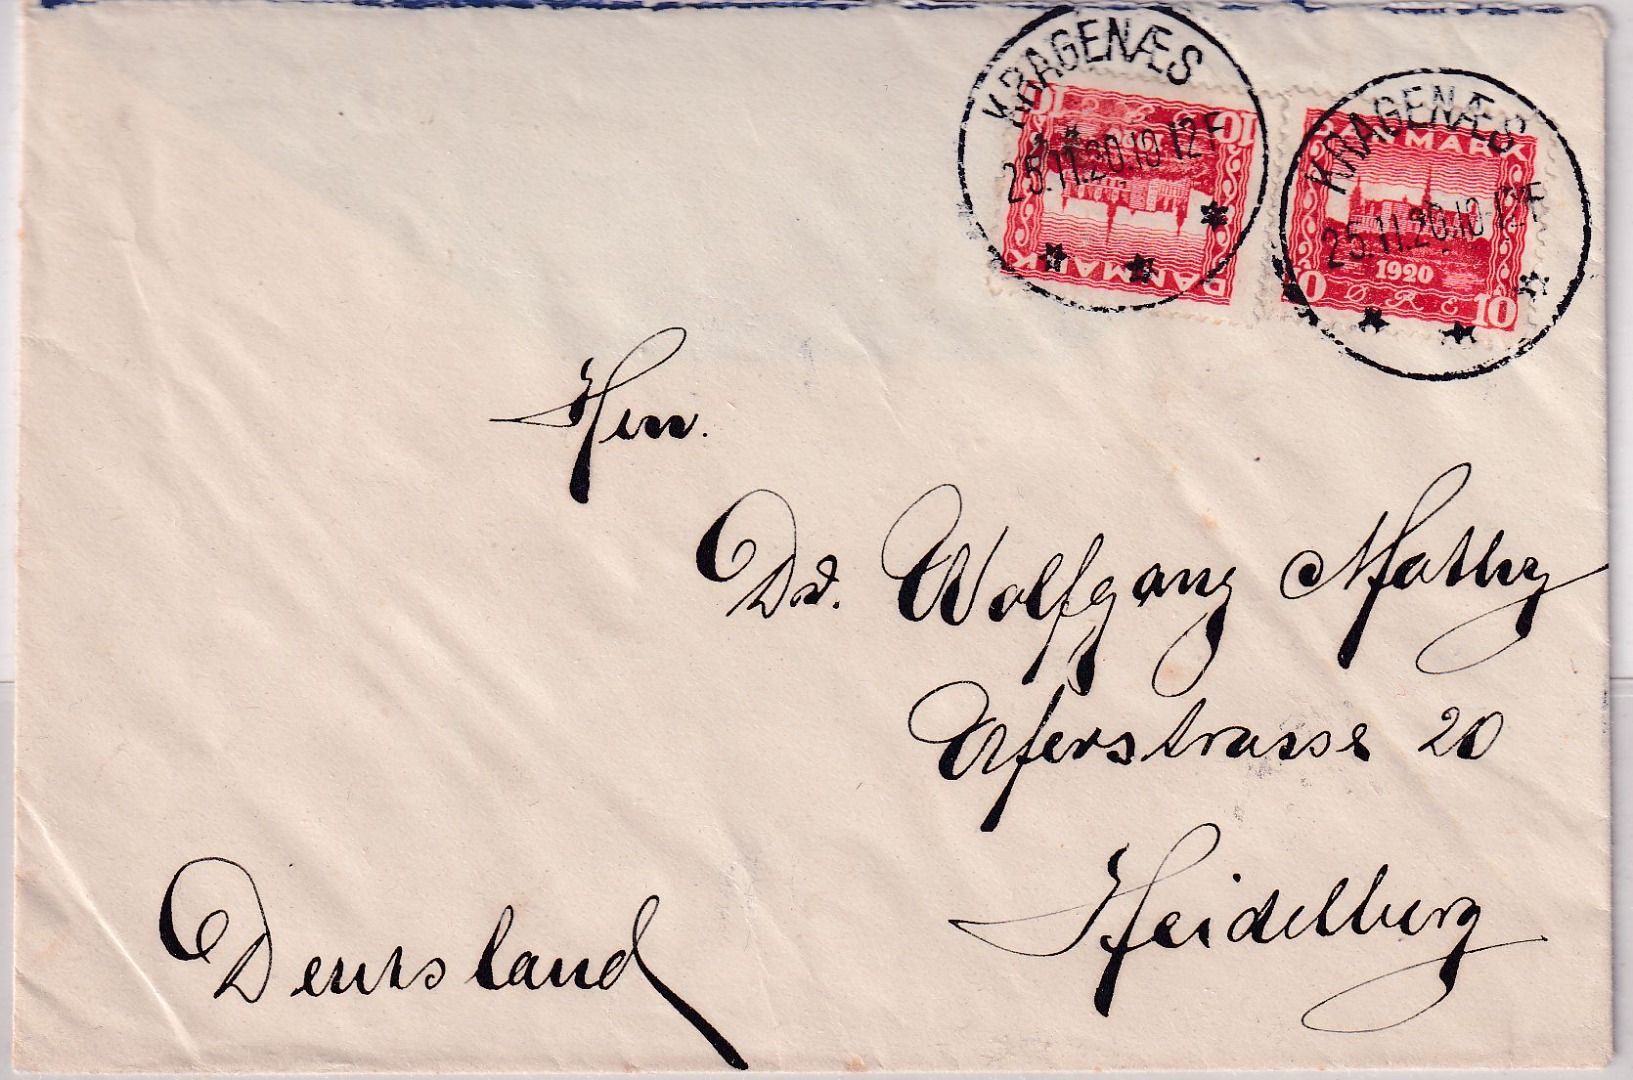 KRAGENÆS
25.11.20.10-12F
DANMARK
10 ØRE 10
KRAGENÆS
25.11.20.10-12F
DANMARK
1920
10 ØRE 10
Herr.
Dr. Wolfgang Mathy
Uferstrasse 20
Heidelberg
Deutsland